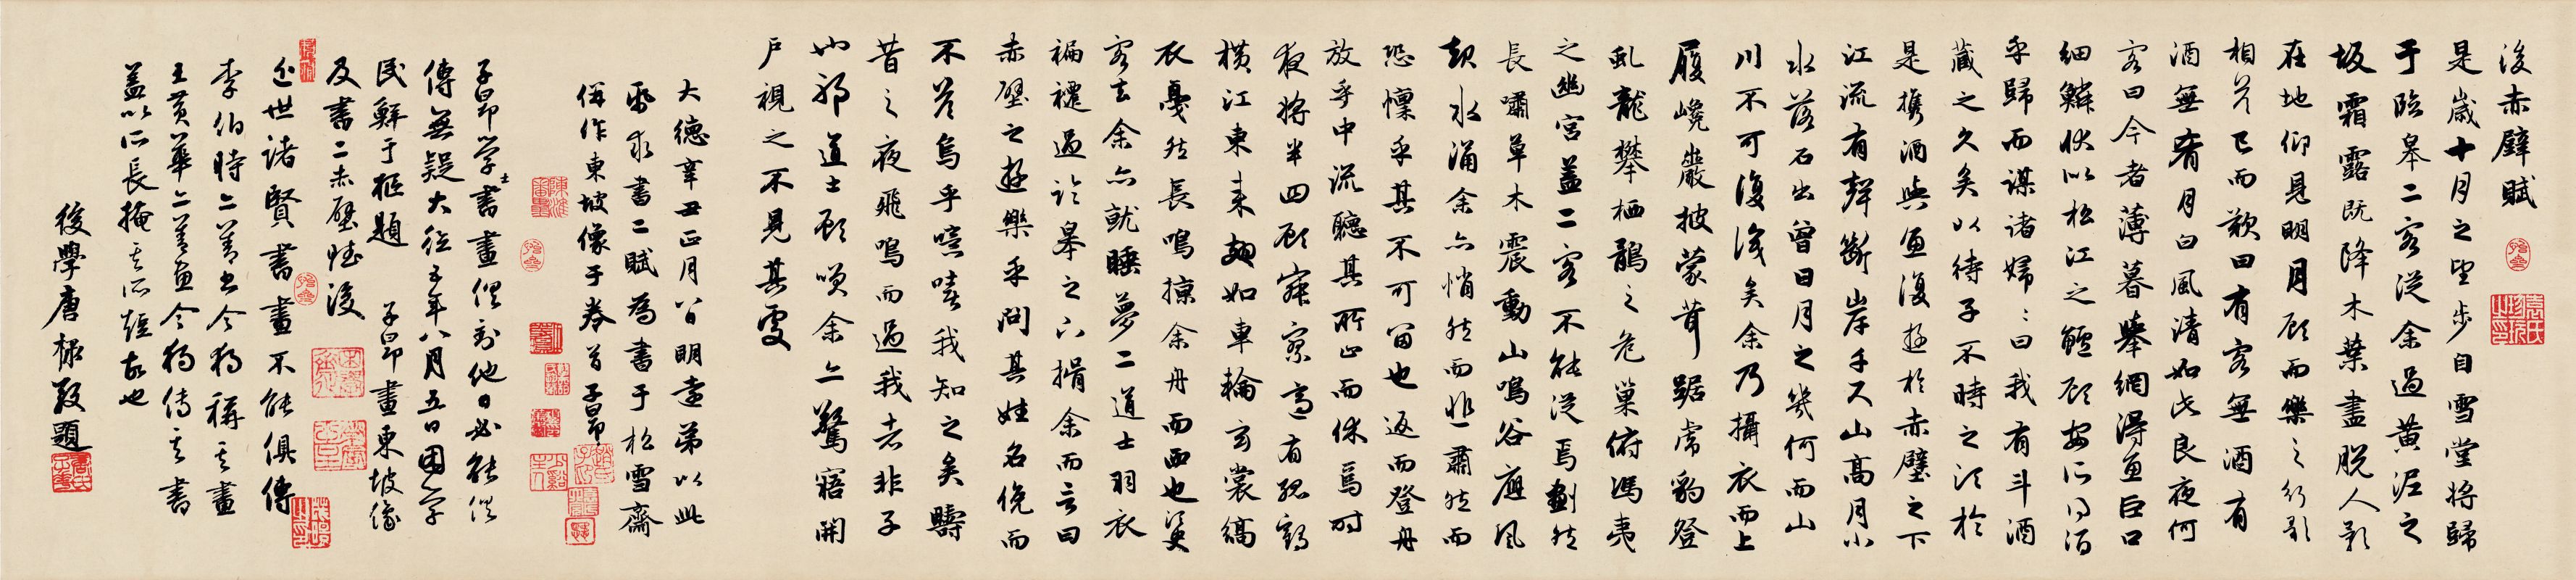 後赤壁賦
是歲十月之望步自雪堂將歸
于臨皋二客從余過黃泥之
坂霜露既降木葉盡脫人影
在地仰見明月顧而樂之行歌
相答已而歎曰有客無酒有
酒無肴月白風清如此良夜何
客曰今者薄暮舉網得魚巨口
細鱗狀似松江之鱸顧安所得酒
乎歸而謀諸婦婦曰我有斗酒
藏之久矣以待子不時之須於
是攜酒與魚復遊於赤壁之下
江流有聲斷岸千尺山高月小
水落石出曾日月之幾何而山
川不可復識矣余乃攝衣而上
履巉巖披蒙茸踞虎豹登
虬龍攀栖鶻之危巢俯馮夷
之幽宮蓋二客不能從焉劃然
長嘯草木震動山鳴谷應風
起水涌余亦悄然而悲肅然而
恐懍乎其不可留也返而登舟
放乎中流聽其所止而休焉時
夜將半四顧寂寥適有孤鶴
橫江東來翅如車輪玄裳縞
衣戛然長鳴掠余舟而西也須臾
客去余亦就睡夢二道士羽衣
褊褼過臨皋之下揖余而言曰
赤壁之遊樂乎問其姓名俛而
不答烏乎噫嘻我知之矣疇
昔之夜飛鳴而過我者非子
也邪道士顧嘆余亦驚寤開
戶視之不見其處
大德辛丑正月八日明遠弟以此
紙求書二賦為書于松雪齋
併作東坡像于卷首子昂
子昂學士書畫俱到他日必能俱
傳無疑大德五年八月五日困學
民鮮于樞題
子昂畫東坡像
及書二赤壁賦後
近世諸賢書畫不能俱傳
李伯時亦善書今獨稱其畫
王黃華亦善畫今獨傳其書
蓋以所長掩其所短故也
後學唐棣敬題